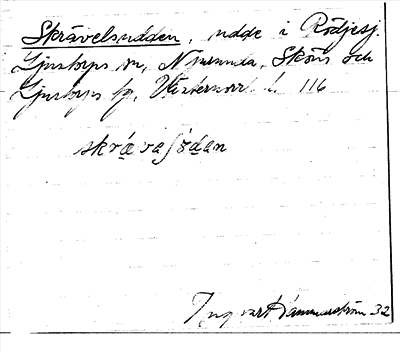 Skrävelsudden, udde i Rödjesj.
Ljustorps sn, Njurunda, Sköns och
Ljustorps tg, Västernorrl. l. 116
skrävasʃödan
Ingvar Hammarström 32